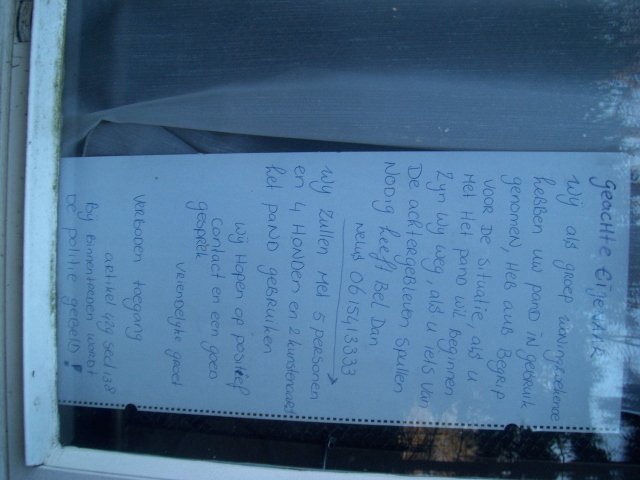 geachte Eigenaar
wij als groep woningzoekende
hebben uw pand in gebruik
genomen, Heb aub Begrip
voor De situatie, als u
Met Het pand wil Beginnen
Zyn wy weg, als u iets van
De achtergebleven Spullen
Nodig heeft Bel Dan
0615413333
wy zullen Met 5 personen
en 4 HONDEN en 2 kunstenaars
het pand gebruiken
wij Hopen op positief
contact en een goed
gesprek
vriendelyke groet
verboden toegang
artikel 429 sect 138
By Binnentreden wordt
De politie gebeld!